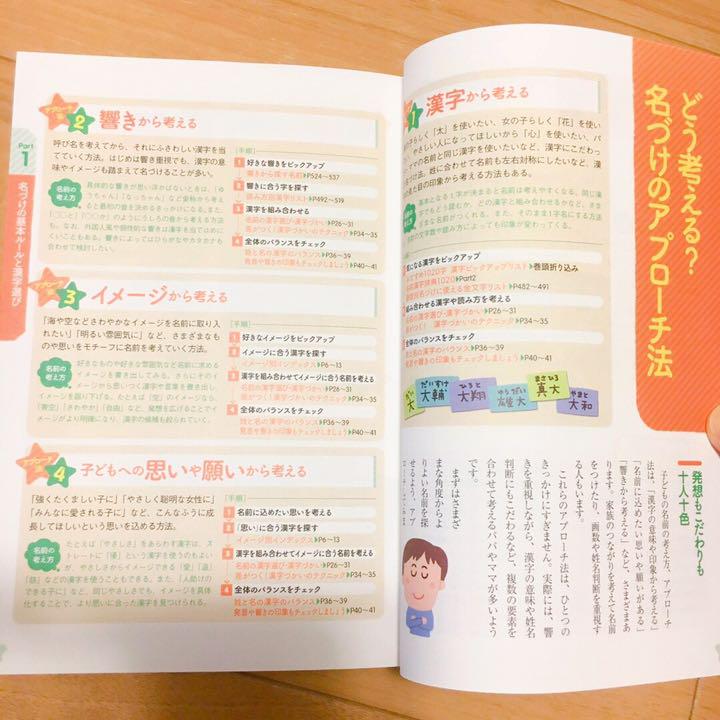 どう考える?
名づけのアプローチ法
発想もこだわりも
十人十色
子どもの名前の考え方、アプローチ
法は、「漢字の意味や印象から考える」
「名前に込めたい思いや願いがある」
「響きから考える」など、さまざまあ
ります。家族のつながりを考えて名前
をつけたり、画数や姓名判断を重視す
る人もいます。
これらのアプローチ法は、ひとつの
きっかけにすぎません。実際には、響
きを重視しながら、漢字の意味や姓名
判断にもこだわるなど、複数の要素を
合わせて考えるパパやママが多いよう
まずはさまざ
まな角度からよ
りよい名前を探
せるよう、アプ
1 漢字から考える
らしく「太」を使いたい、女の子らしく「花」を使
い、やさしい人になってほしいから「心」を使いたい、パ
ママの名前と同じ漢字を使いたいなど、漢字にこだわっ
づけ法。姓に合わせて名前も左右対称にしたいなど、漢
た目の印象から考える方法もある。
基本となる1字が決まると名前は考えやすくなる。同じ漢
気になる漢字をピックアップ
おすすめ1020字 漢字ピックアップリスト▶巻頭折り込み
名前の漢字辞典1020▶Part2
組み合わせる漢字や読み方を考える
名前の漢字選び・漢字づかい▶P26~31
差がつく! 漢字づかいのテクニック▶P34~35
全体のバランスをチェック
姓と名の漢字のバランス▶P36~39
発音や響きの印象もチェックしましょう▶P40~41
大
だいすけ
大輔
ひろと
大翔
ゆうだい
雄大
まさひろ
真大
やまと
大和
Part
1
名づけの基本ルールと漢字選び
アプローチ法
2 響きから考える
呼び名を考えてから、それにふさわしい漢字を当
てていく方法。はじめは響き重視でも、漢字の意
味やイメージも踏まえて名づけることが多い。
名前の
考え方
具体的な響きが思い浮かばないときは、「ゆ
うちゃん」「なっちゃん」など愛称から考え
ると最初の音を決めるきっかけになる。また、
「○○と」「○○か」のようにうしろの音から考える方法
も。なお、外国人風や個性的な響きは漢字を当てはめに
くいこともある。響きによってはひらがなやカタカナも
合わせて検討したい。
[手順]
1 好きな響きをピックアップ
響きから探す名前▶P524~537
2 響きに合う字を探す
読み方別漢字リスト▶P492~519
3 漢字を組み合わせる
名前の漢字選び・漢字づかい▶P26~31
差がつく! 漢字づかいのテクニック▶P34~35
4 全体のバランスをチェック
姓と名の漢字のバランス▶P36~39
発音や響きの印象もチェックしましょう▶P40~41
アプローチ法
3 イメージから考える
「海や空などさわやかなイメージを名前に取り入
れたい」「明るい雰囲気に」など、さまざまなも
のや思いをモチーフに名前を考えていく方法。
名前の
考え方
好きなものや好きな雰囲気など名前に求める
イメージを書き出してみる。さらにそのイメ
ージから思いつく漢字や言葉を書き出し、イ
メージを掘り下げる。たとえば「空」のイメージなら、
「青空」「さわやか」「自由」など、発想を広げることでイ
メージがより明確になり、漢字の候補も絞られていく。
[手順]
1 好きなイメージをピックアップ
2 イメージに合う漢字を探す
イメージ別インデックス▶P6~13
3 漢字を組み合わせてイメージに合う名前を考える
名前の漢字選び・漢字づかい▶P26~31
差がつく! 漢字づかいのテクニック▶P34~35
4 全体のバランスをチェック
姓と名の漢字のバランス▶P36~39
発音や響きの印象もチェックしましょう▶P40~41
アプローチ法
4 子どもへの思いや願いから考える
「強くたくましい子に」「やさしく聡明な女性に」
「みんなに愛される子に」など、こんなふうに成
長してほしいという思いを込める方法。
名前の
考え方
たとえば「やさしさ」をあらわす漢字は、ス
トレートに「優」という漢字を使うのもよい
が、やさしさからイメージできる「愛」「温」
「慈」などの漢字を使うこともできる。また、「人助けの
できる子に」など、同じやさしさでも、イメージを具体
化することで、より思いに合った漢字を見つけられる。
[手順]
1 名前に込めたい思いを考える
2 「思い」に合う漢字を探す
イメージ別インデックス▶P6~13
3 漢字を組み合わせてイメージに合う名前を考える
名前の漢字選び・漢字づかい▶P26~31
差がつく! 漢字づかいのテクニック▶P34~35
4 全体のバランスをチェック
姓と名の漢字のバランス▶P36~39
発音や響きの印象もチェックしましょう▶P40~41